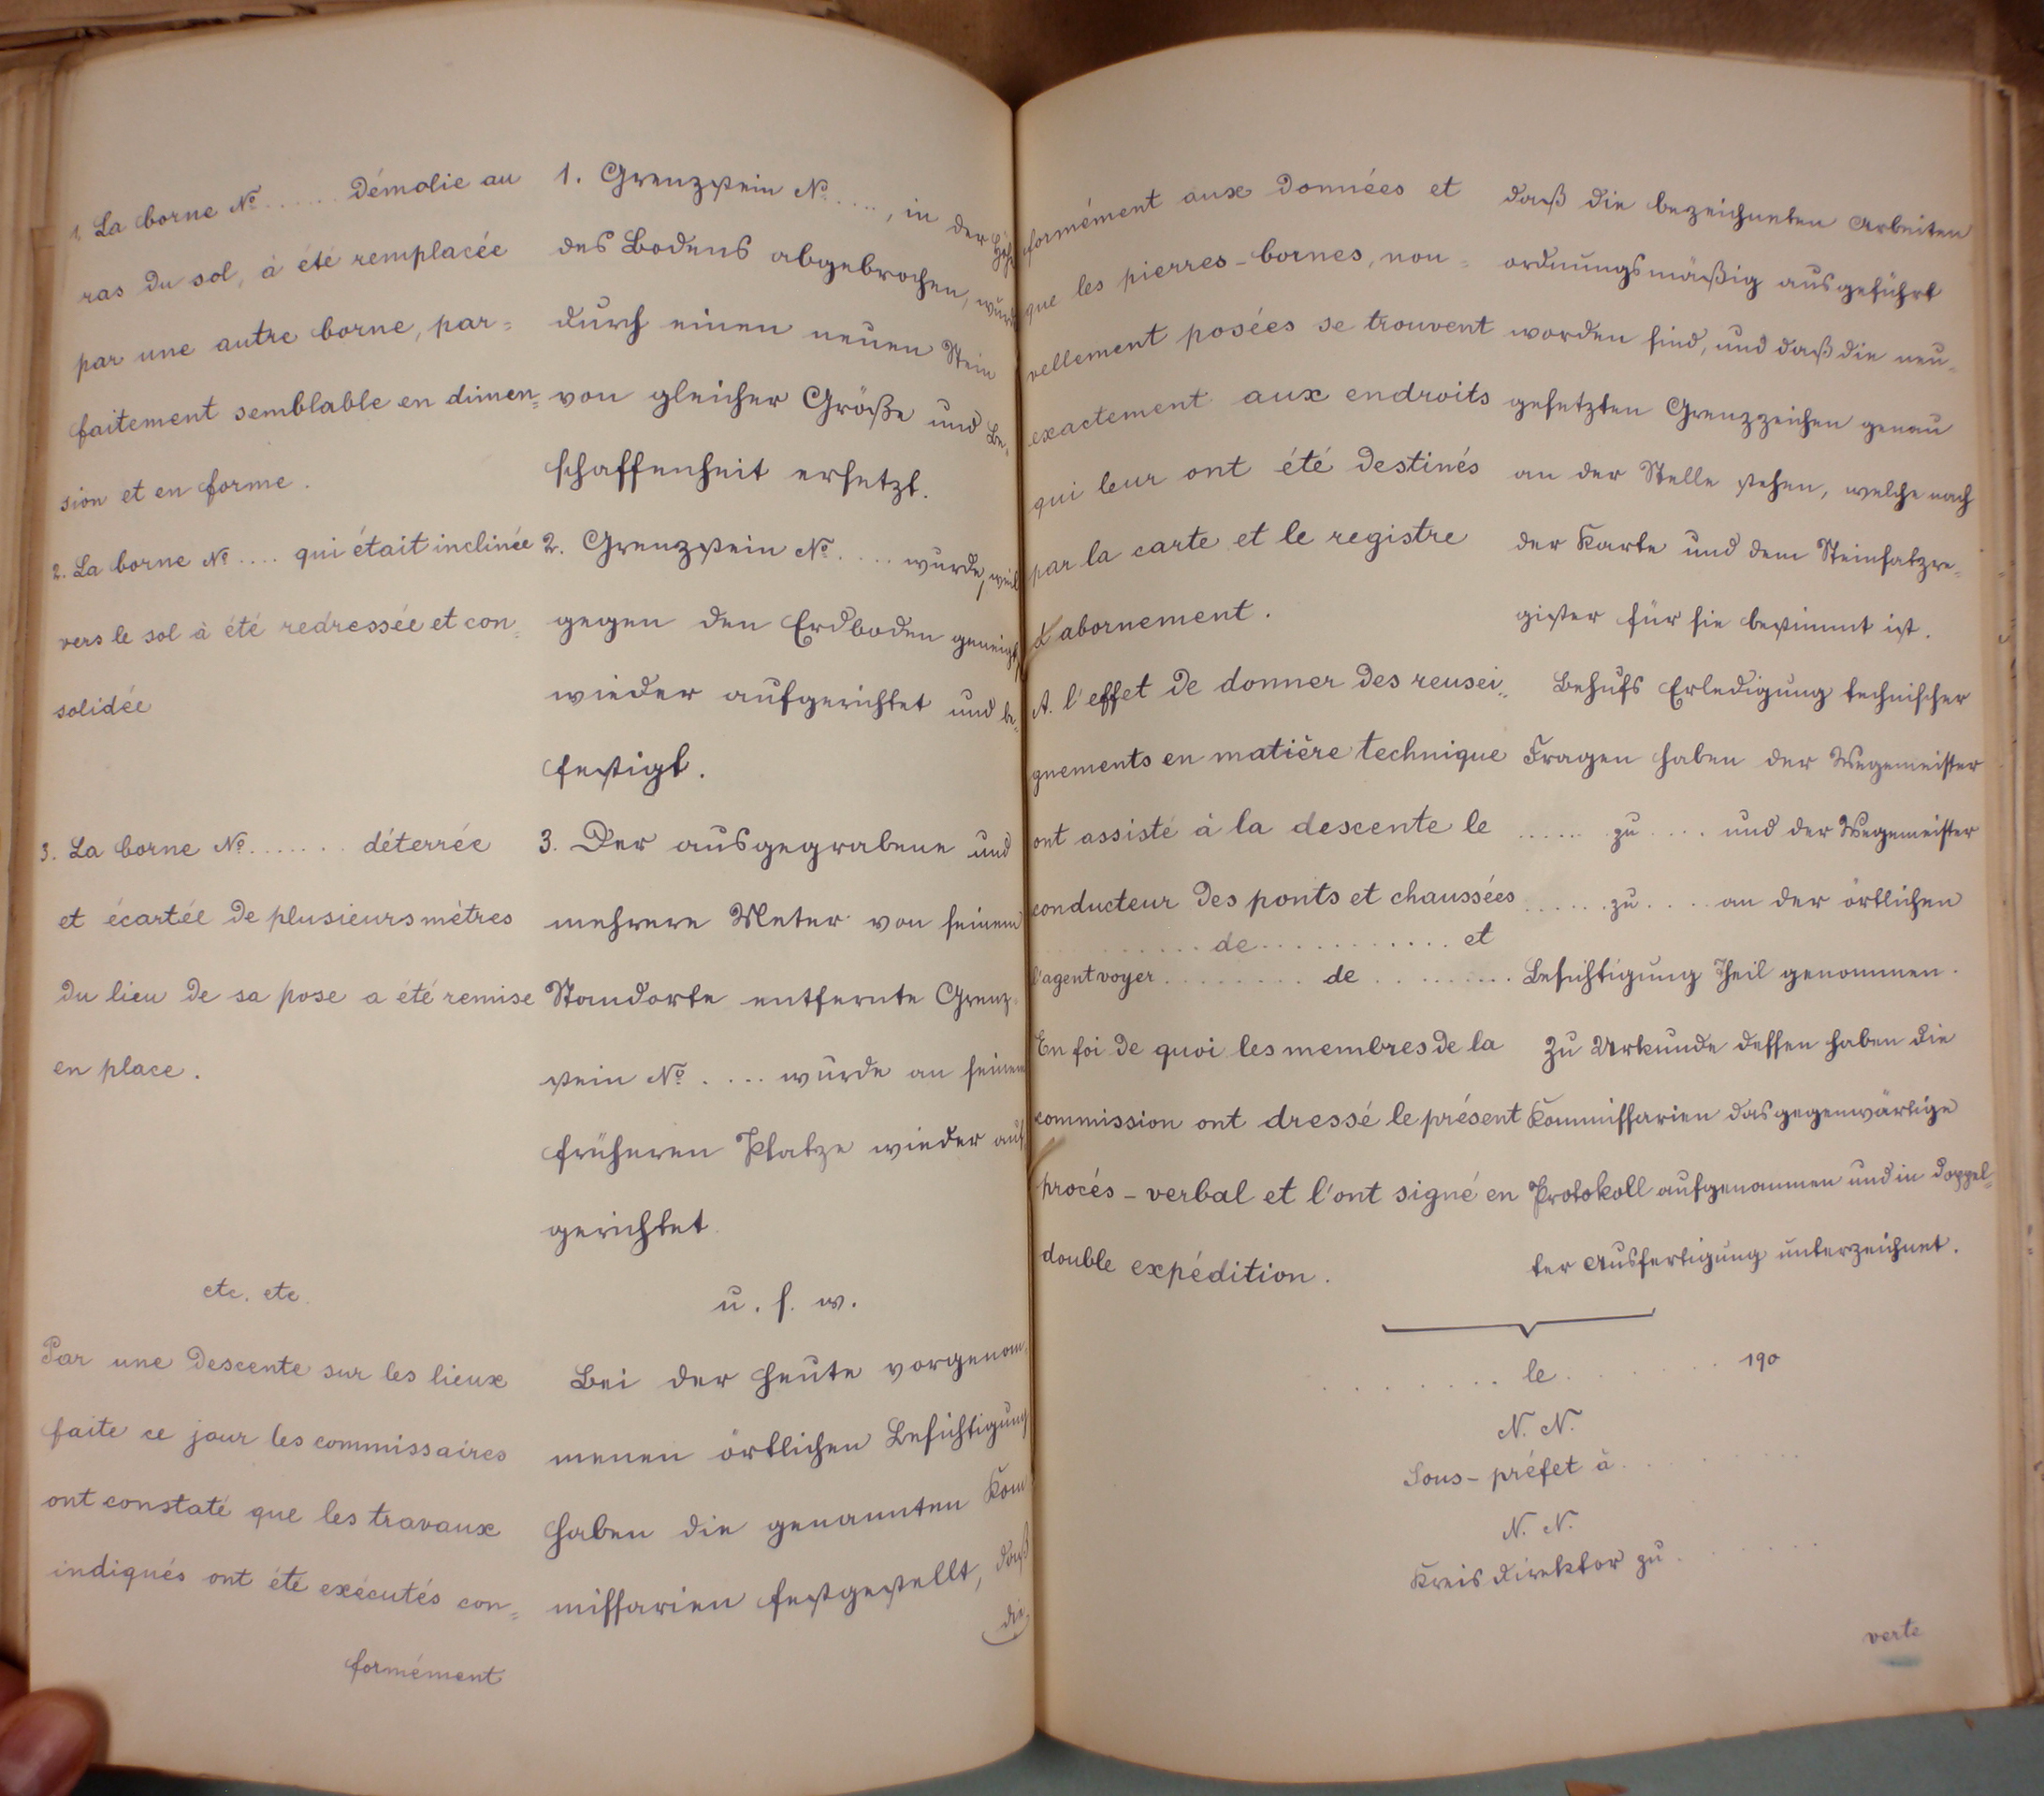 1. La borne No ...... démolie au
ras du sol, à été remplacée
par une autre borne, par=
faitement semblable en dimen=
sion et en forme.
2. La borne No .... qui était inclinée
vers le sol à été redressée et con=
solidée
3. La borne No ....... déterrée
et écartée de plusieurs mètres
du lieu de sa pose a été remise
en place.
etc. etc.
Par une descente sur les lieux
faite ce jour les commissaires
ont constaté que les travaux
indiqués ont été exécutés con=
formément
1. Grenzstein No ...., in der Höhe
des Bodens abgebrochen, wurde
durch einen neuen Stein
von gleicher Größe und Be=
schaffenheit ersetzt.
2. Grenzstein No .... wurde, weil
gegen den Erdboden geneigt,
wieder aufgerichtet und be=
festigt.
3. Der ausgegrabene und
mehrere Meter von seinem
Standorte entfernte Grenz=
stein No .... wurde an seinem
früheren Platze wieder auf
gerichtet.
u. s. w.
Bei der heute vorgenom=
menen örtlichen Besichtigung
haben die genannten Kom
missarien festgestellt, daß
die
formément aux données et
que les pierres-bornes, nou=
vellement posées se trouvent
exactement aux endroits
qui leur ont été destinés
par la carte et le registre
d'abornement.
A l'effet de donner des reusei=
gnements en matière technique
ont assisté à la descente le
conducteur des ponts et chaussées
........... de ........... et
l'agent voyer ......... de .........
En foi de quoi les membres de la
commission ont dressé le présent
procés-verbal et l'ont signé en
double expédition.
daß die bezeichneten Arbeiten
ordnungsmäßig ausgeführt
worden sind, und daß die neu=
gesetzten Grenzzeichen genau
an der Stelle stehen, welche nach
der Karte und dem Steinsatzre=
gister für sie bestimmt ist.
Behufs Erledigung technischer
Fragen haben der Wegemeister
...... zu .... und der Wegemeister
...... zu .... an der örtlichen
Besichtigung Theil genommen.
Zu Urkunde dessen haben die
Kommissarien das gegenwärtige
Protokoll aufgenommen und in doppel=
ter Ausfertigung unterzeichnet.
........ le ....... 190
N. N.
Sous-préfet à .......
N. N.
Kreisdirektor zu .......
verte